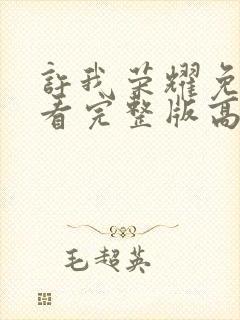 許我荣耀免
看完整版高
毛超英